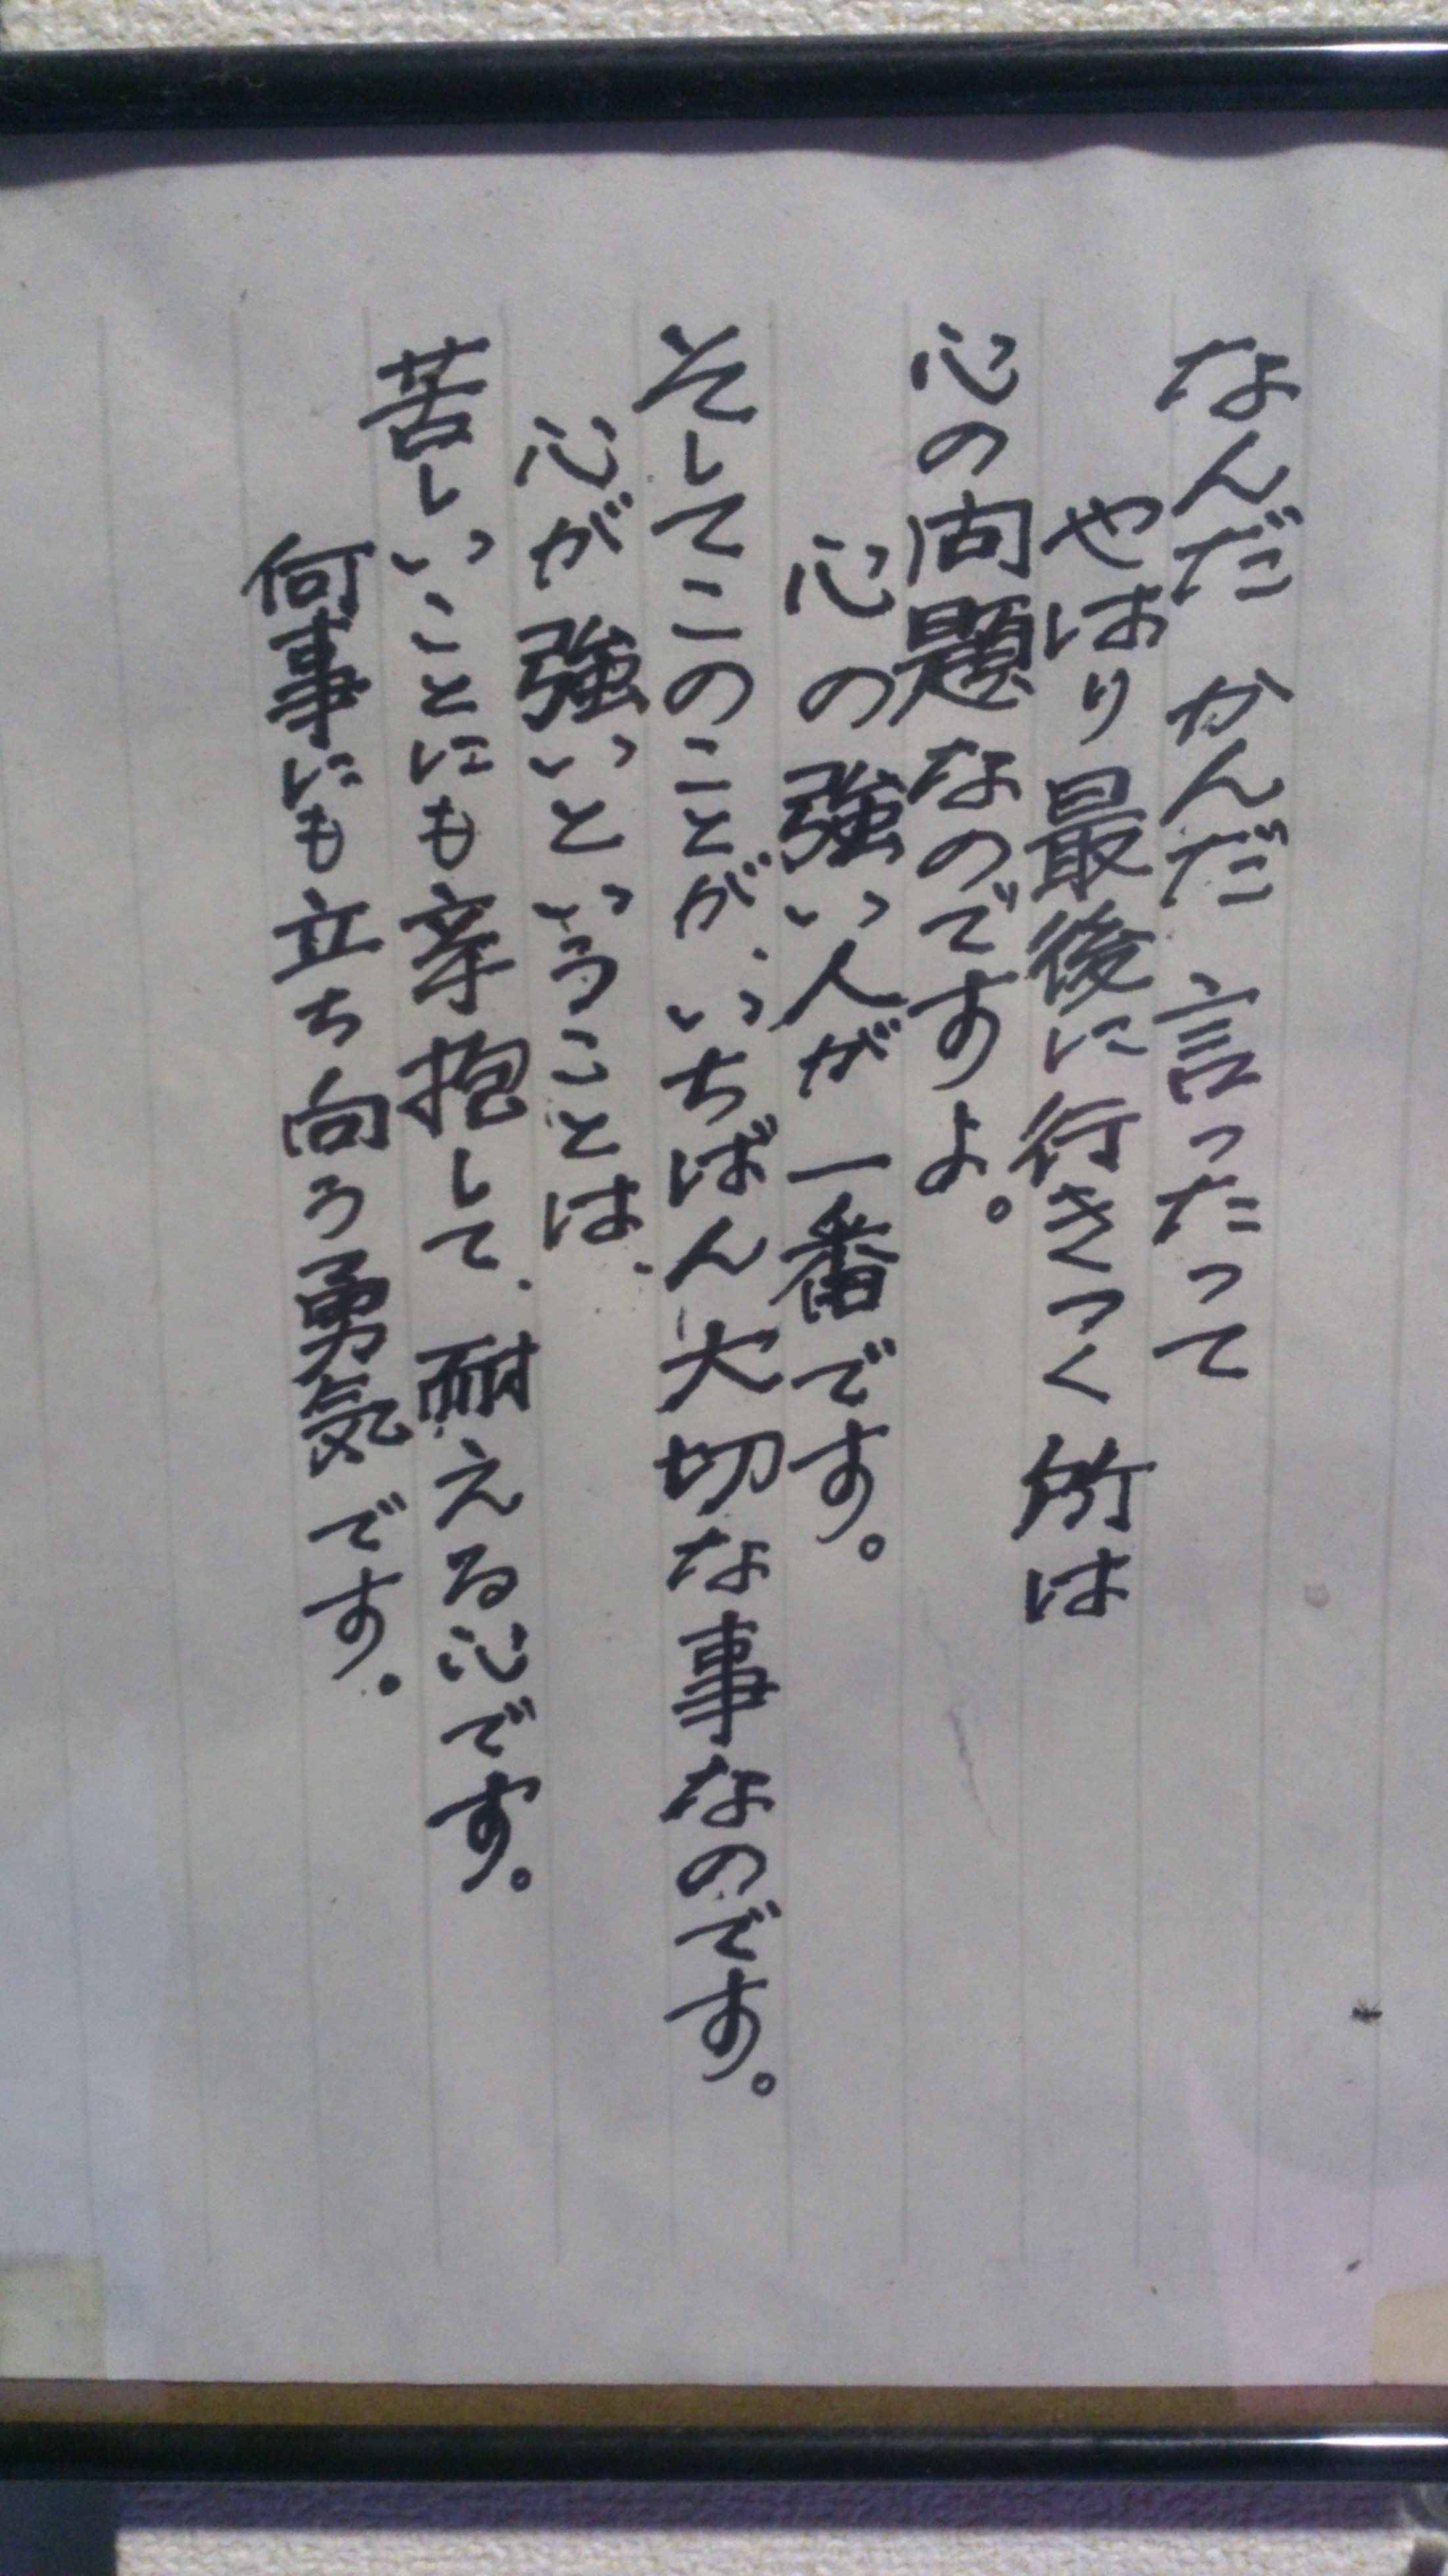 なんだ かんだ 言ったって
やはり最後に行きつく所は
心の問題なのですよ。
心の強い人が一番です。
そしてこのことが、いちばん大切な事なのです。
心が強いということは、
苦しいことにも辛抱して、耐える心です。
何事にも立ち向う勇気です。